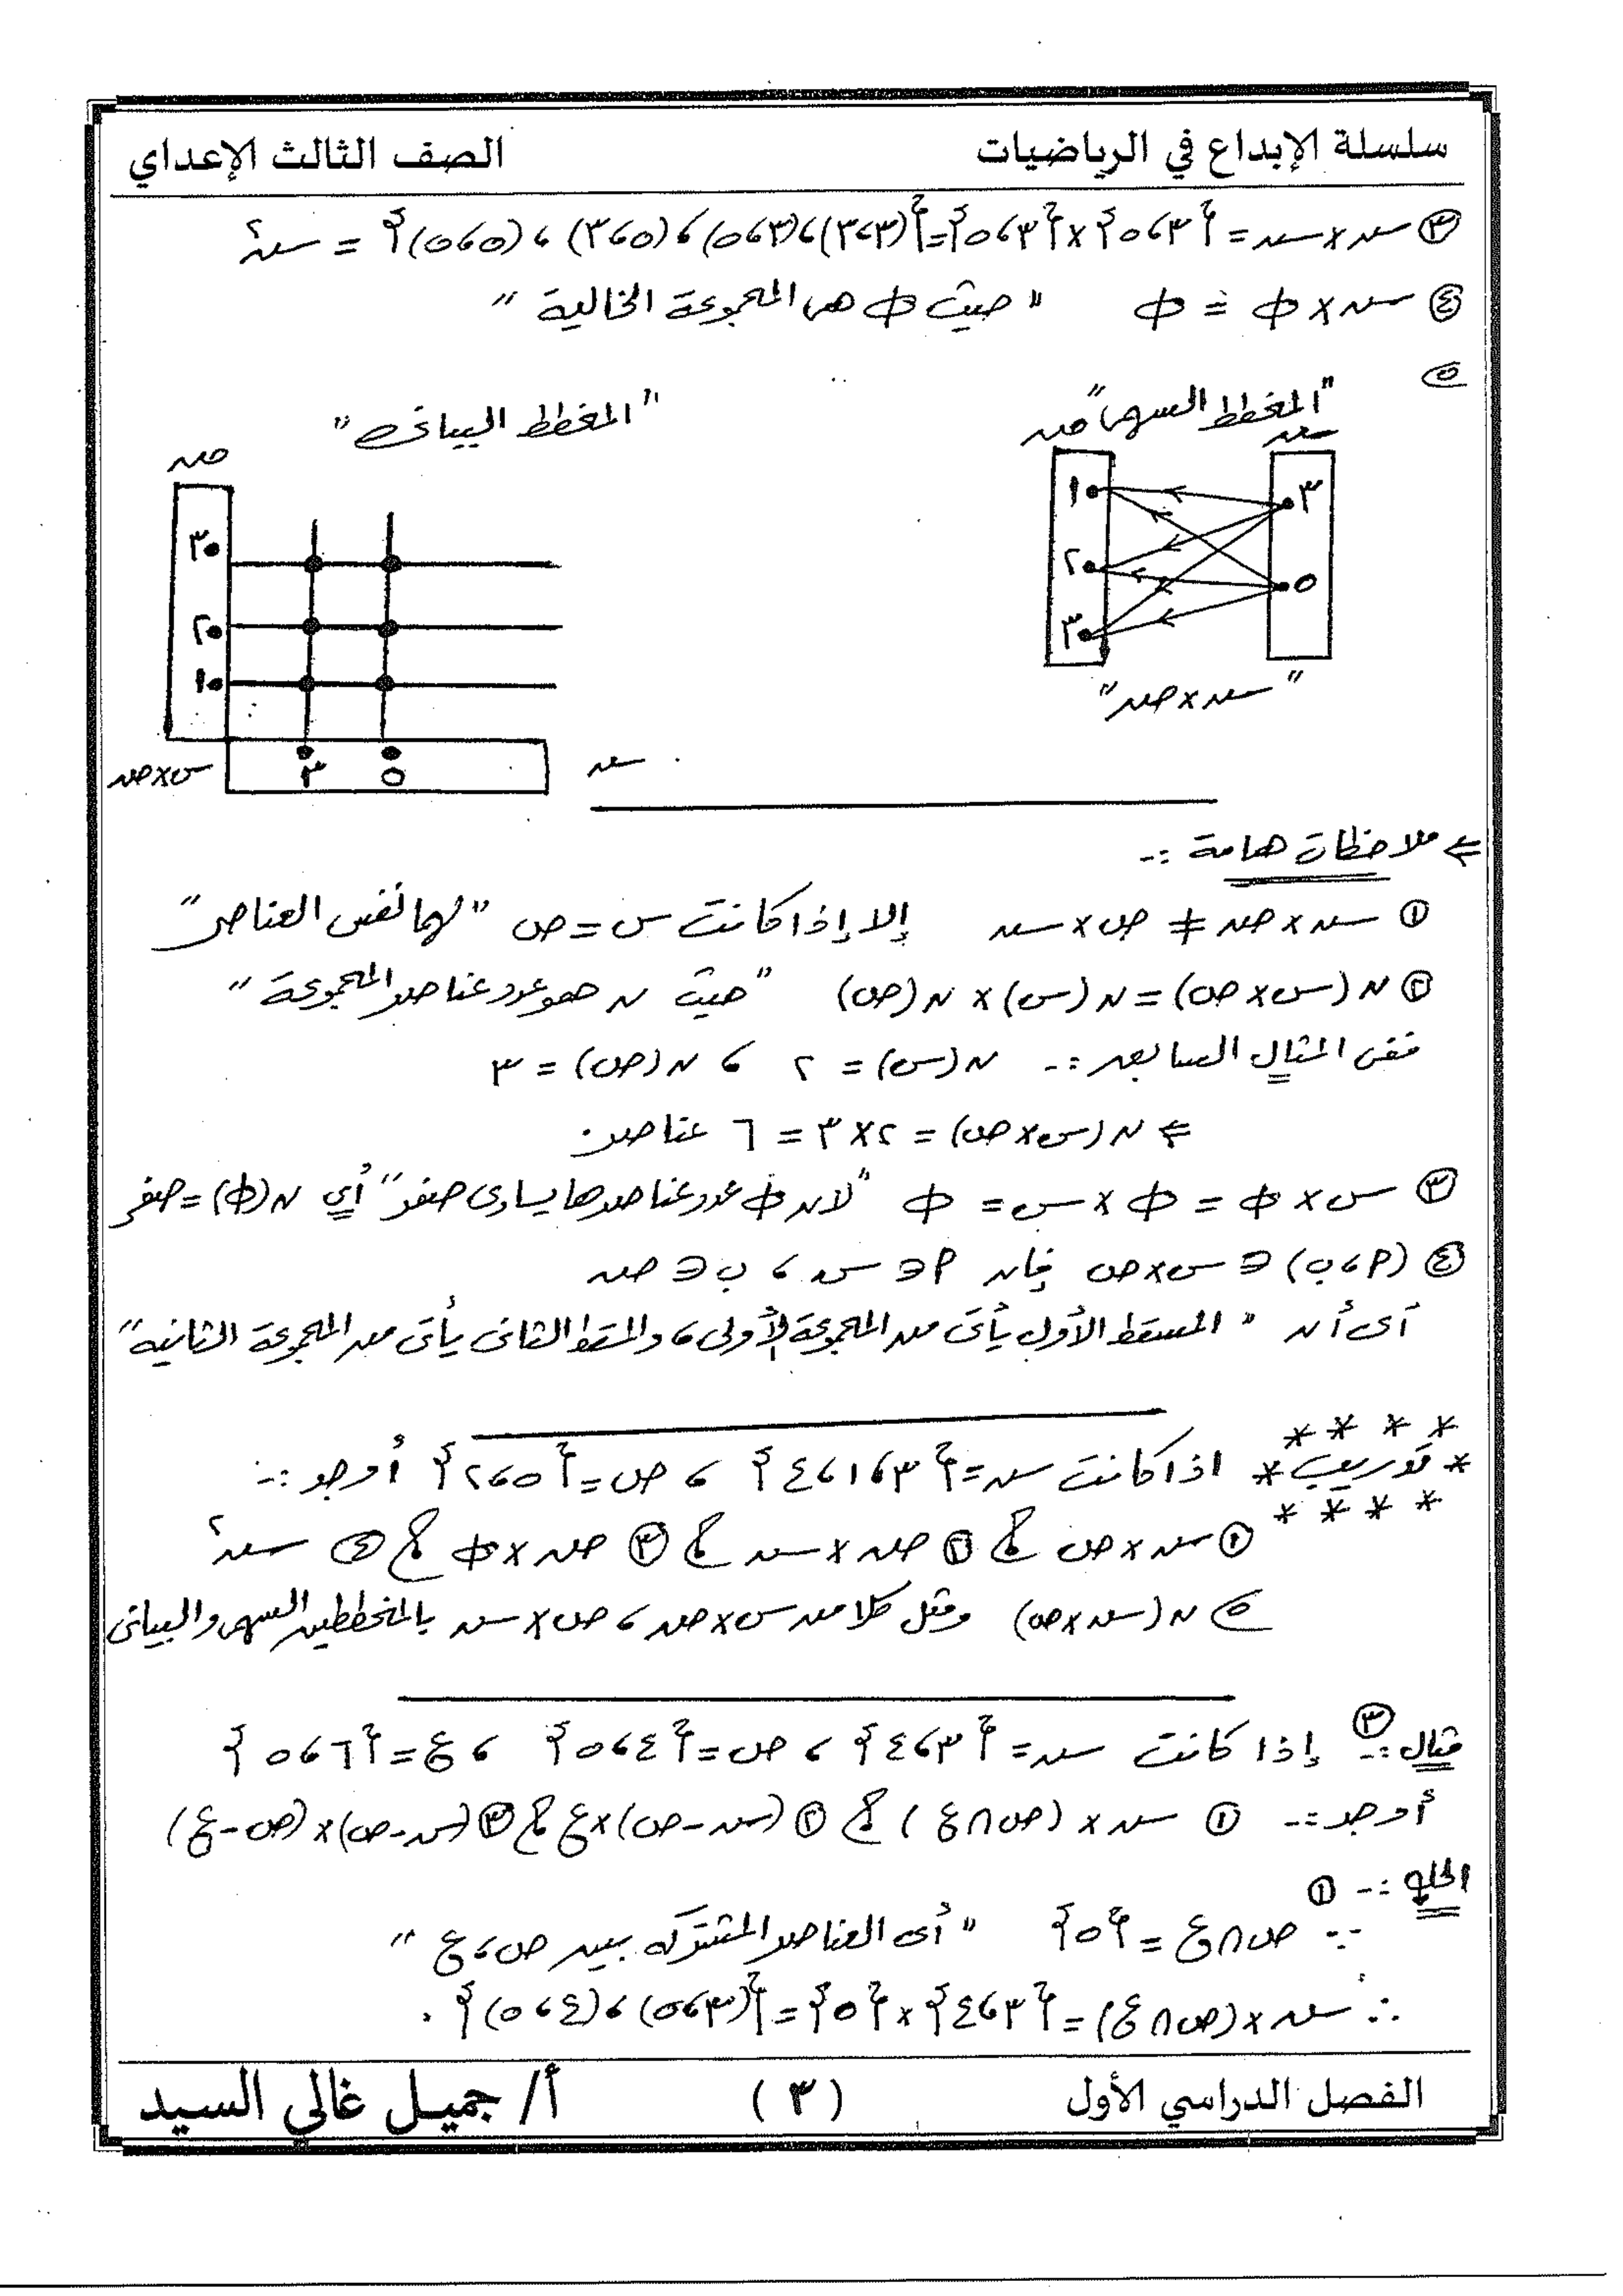 سلسلة الإبداع في الرياضيات
الصف الثالث الإعداي
③ سـ × سـ = {٣، ٥} × {٣، ٥} = {(٣،٣)، (٣،٥)، (٥،٣)، (٥،٥)} = سـ²
④ سـ × Φ = Φ "حيث Φ هى المجموعة الخالية"
⑤
"المخطط السهمى"
سـ
صـ
٣
٥
١
٢
٣
"سـ × صـ"
"المخطط البيانى"
صـ
٣
٢
١
٣ ٥
سـ
س × صـ
⇐ ملاحظات هامة :-
① سـ × صـ ≠ ص × سـ إلا إذا كانت س = ص "لهما نفس العناصر"
② ن (س × ص) = ن (س) × ن (ص) "حيث ن هو عدد عناصر المجموعة"
ففى المثال السابق :- ن (س) = ٢ ، ن (ص) = ٣
⇐ ن (س × ص) = ٢ × ٣ = ٦ عناصر.
③ س × Φ = Φ × س = Φ "لأن Φ عدد عناصرها يساوى صفر" أي ن (Φ) = صفر
④ (أ، ب) ∋ س × ص فإن أ ∋ س ، ب ∋ صـ
أى أن "المسقط الأول يأتى من المجموعة الأولى، والمسقط الثانى يأتى من المجموعة الثانية"
* * * *
* تدريب * اذا كانت سـ = {٣، ١، ٤} ، ص = {٥، ٢} أوجد :-
* * * *
① سـ × ص ② صـ × سـ ③ صـ × Φ ④ سـ²
⑤ ن (سـ × ص) ومثل كلا من س × صـ ، ص × سـ بالمخططين السهمى والبيانى
مثال ③ :- إذا كانت سـ = {٣، ٤} ، ص = {٤، ٥} ، ع = {٦، ٥}
أوجد :- ① سـ × (ص ∩ ع) ② (سـ - ص) × ع ③ (س - ص) × (ص - ع)
الحل :- ①
∵ ص ∩ ع = {٥} "أى العناصر المشتركه بين ص ، ع"
∴ سـ × (ص ∩ ع) = {٣، ٤} × {٥} = {(٣، ٥)، (٤، ٥)} .
الفصل الدراسي الأول
( ٣ )
أ/ جميل غالي السيد